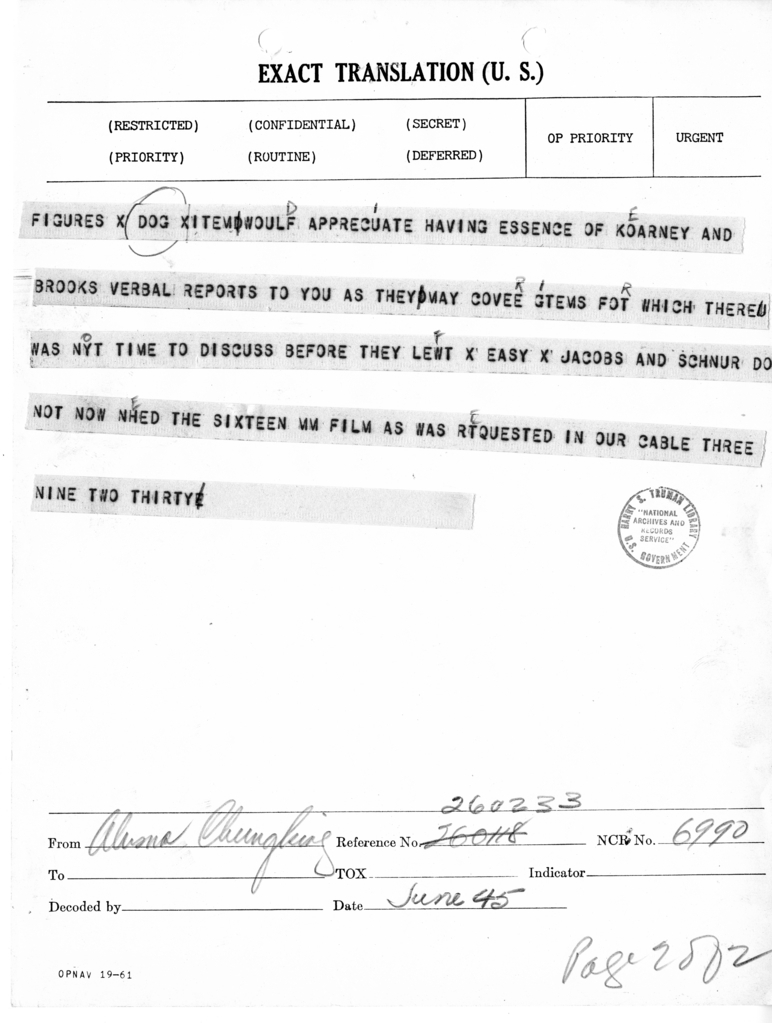 EXACT TRANSLATION (U. S.)
(RESTRICTED) (CONFIDENTIAL) (SECRET) OP PRIORITY URGENT
(PRIORITY) (ROUTINE) (DEFERRED)
D I E
FIGURES X DOG XITEM WOULF APPRECUATE HAVING ESSENCE OF KOARNEY AND
R I R
BROOKS VERBAL REPORTS TO YOU AS THEY MAY COVEE GTEMS FOT WHICH THERE
O F
WAS NYT TIME TO DISCUSS BEFORE THEY LEWT X EASY X JACOBS AND SCHNUR DO
E E
NOT NOW NHED THE SIXTEEN MM FILM AS WAS RTQUESTED IN OUR CABLE THREE
NINE TWO THIRTY
HARRY S. TRUMAN LIBRARY
"NATIONAL
ARCHIVES AND
RECORDS
SERVICE"
U.S. GOVERNMENT
260233
From Alusna Chungking Reference No. 260118 NCR No. 6990
To TOX Indicator
Decoded by Date June 45
Page 2 of 2
OPNAV 19-61